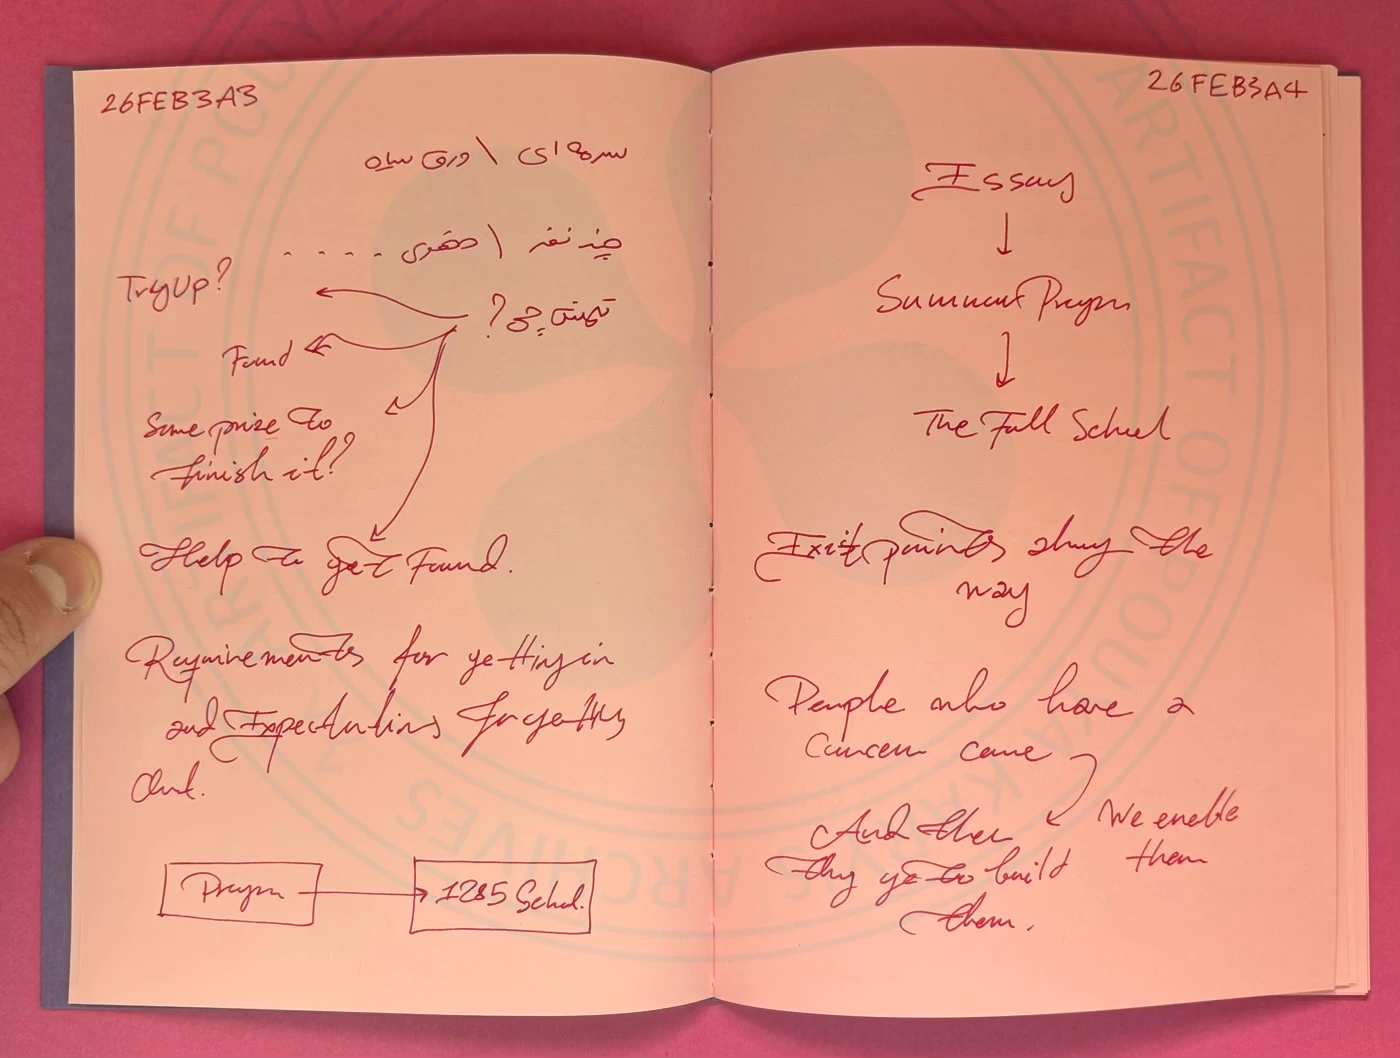 26FEB3A3
سرمه‌ای \ ورق سیاه
چند نفر \ حضوری . . . .
TryUp?
قیمتش چی؟
Found
Some prize to
finish it?
Help to get Found.
Requirements for getting in
and Expectations for getting
Out.
Program
1285 School.
26FEB3A4
Essay
↓
Summer Program
↓
The Full School
Exit points along the
way
People who have a
concern come
We enable
them
And then
they get to build
them.
A ARTIFACT OF POUYA KAVYS ARCHIVES